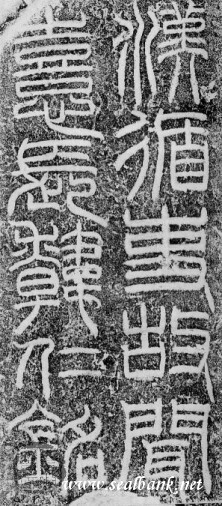 漢循吏故聞
憙長韓仁銘
www.sealbank.net